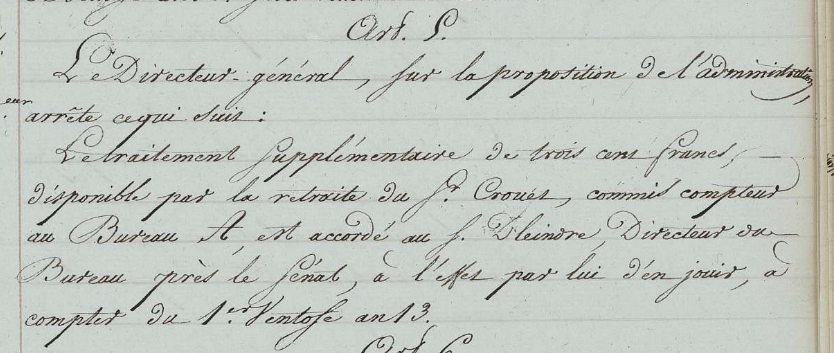 Art. 5.
Le Directeur-général, sur la proposition de l'administration,
arrête ce qui suit :
Le traitement supplémentaire de trois cent francs,
disponible par la retraite du Sr. Crouet, commis compteur
au Bureau A, est accordé au S. Directeur du
Bureau près le Sénat, à l'effet par lui d'en jouir, à
compter du 1.er Ventose an 13.